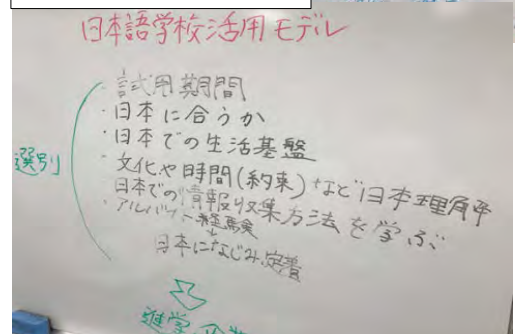 日本語学校活用モデル
選別
・試用期間
・日本に合うか
・日本での生活基盤
・文化や時間(約束)など日本理解
日本での情報収集方法を学ぶ
・アルバイト経験
日本になじみ、定着
進学